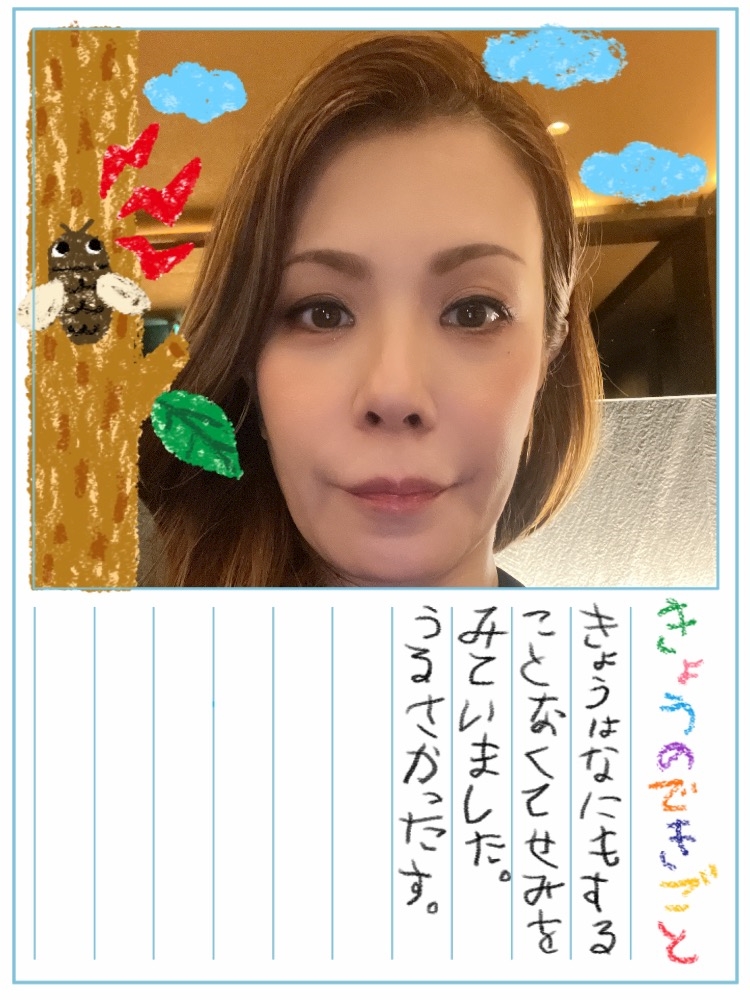 きょうのできごと
きょうはなにもする
ことなくてせみを
みていました。
うるさかったす。